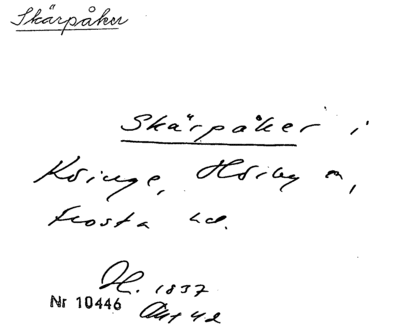 Skärpåker
Skärpåker i
Köinge, Hörby sn,
Frosta hd.
H. 1837
Nr 10446
Akt 42